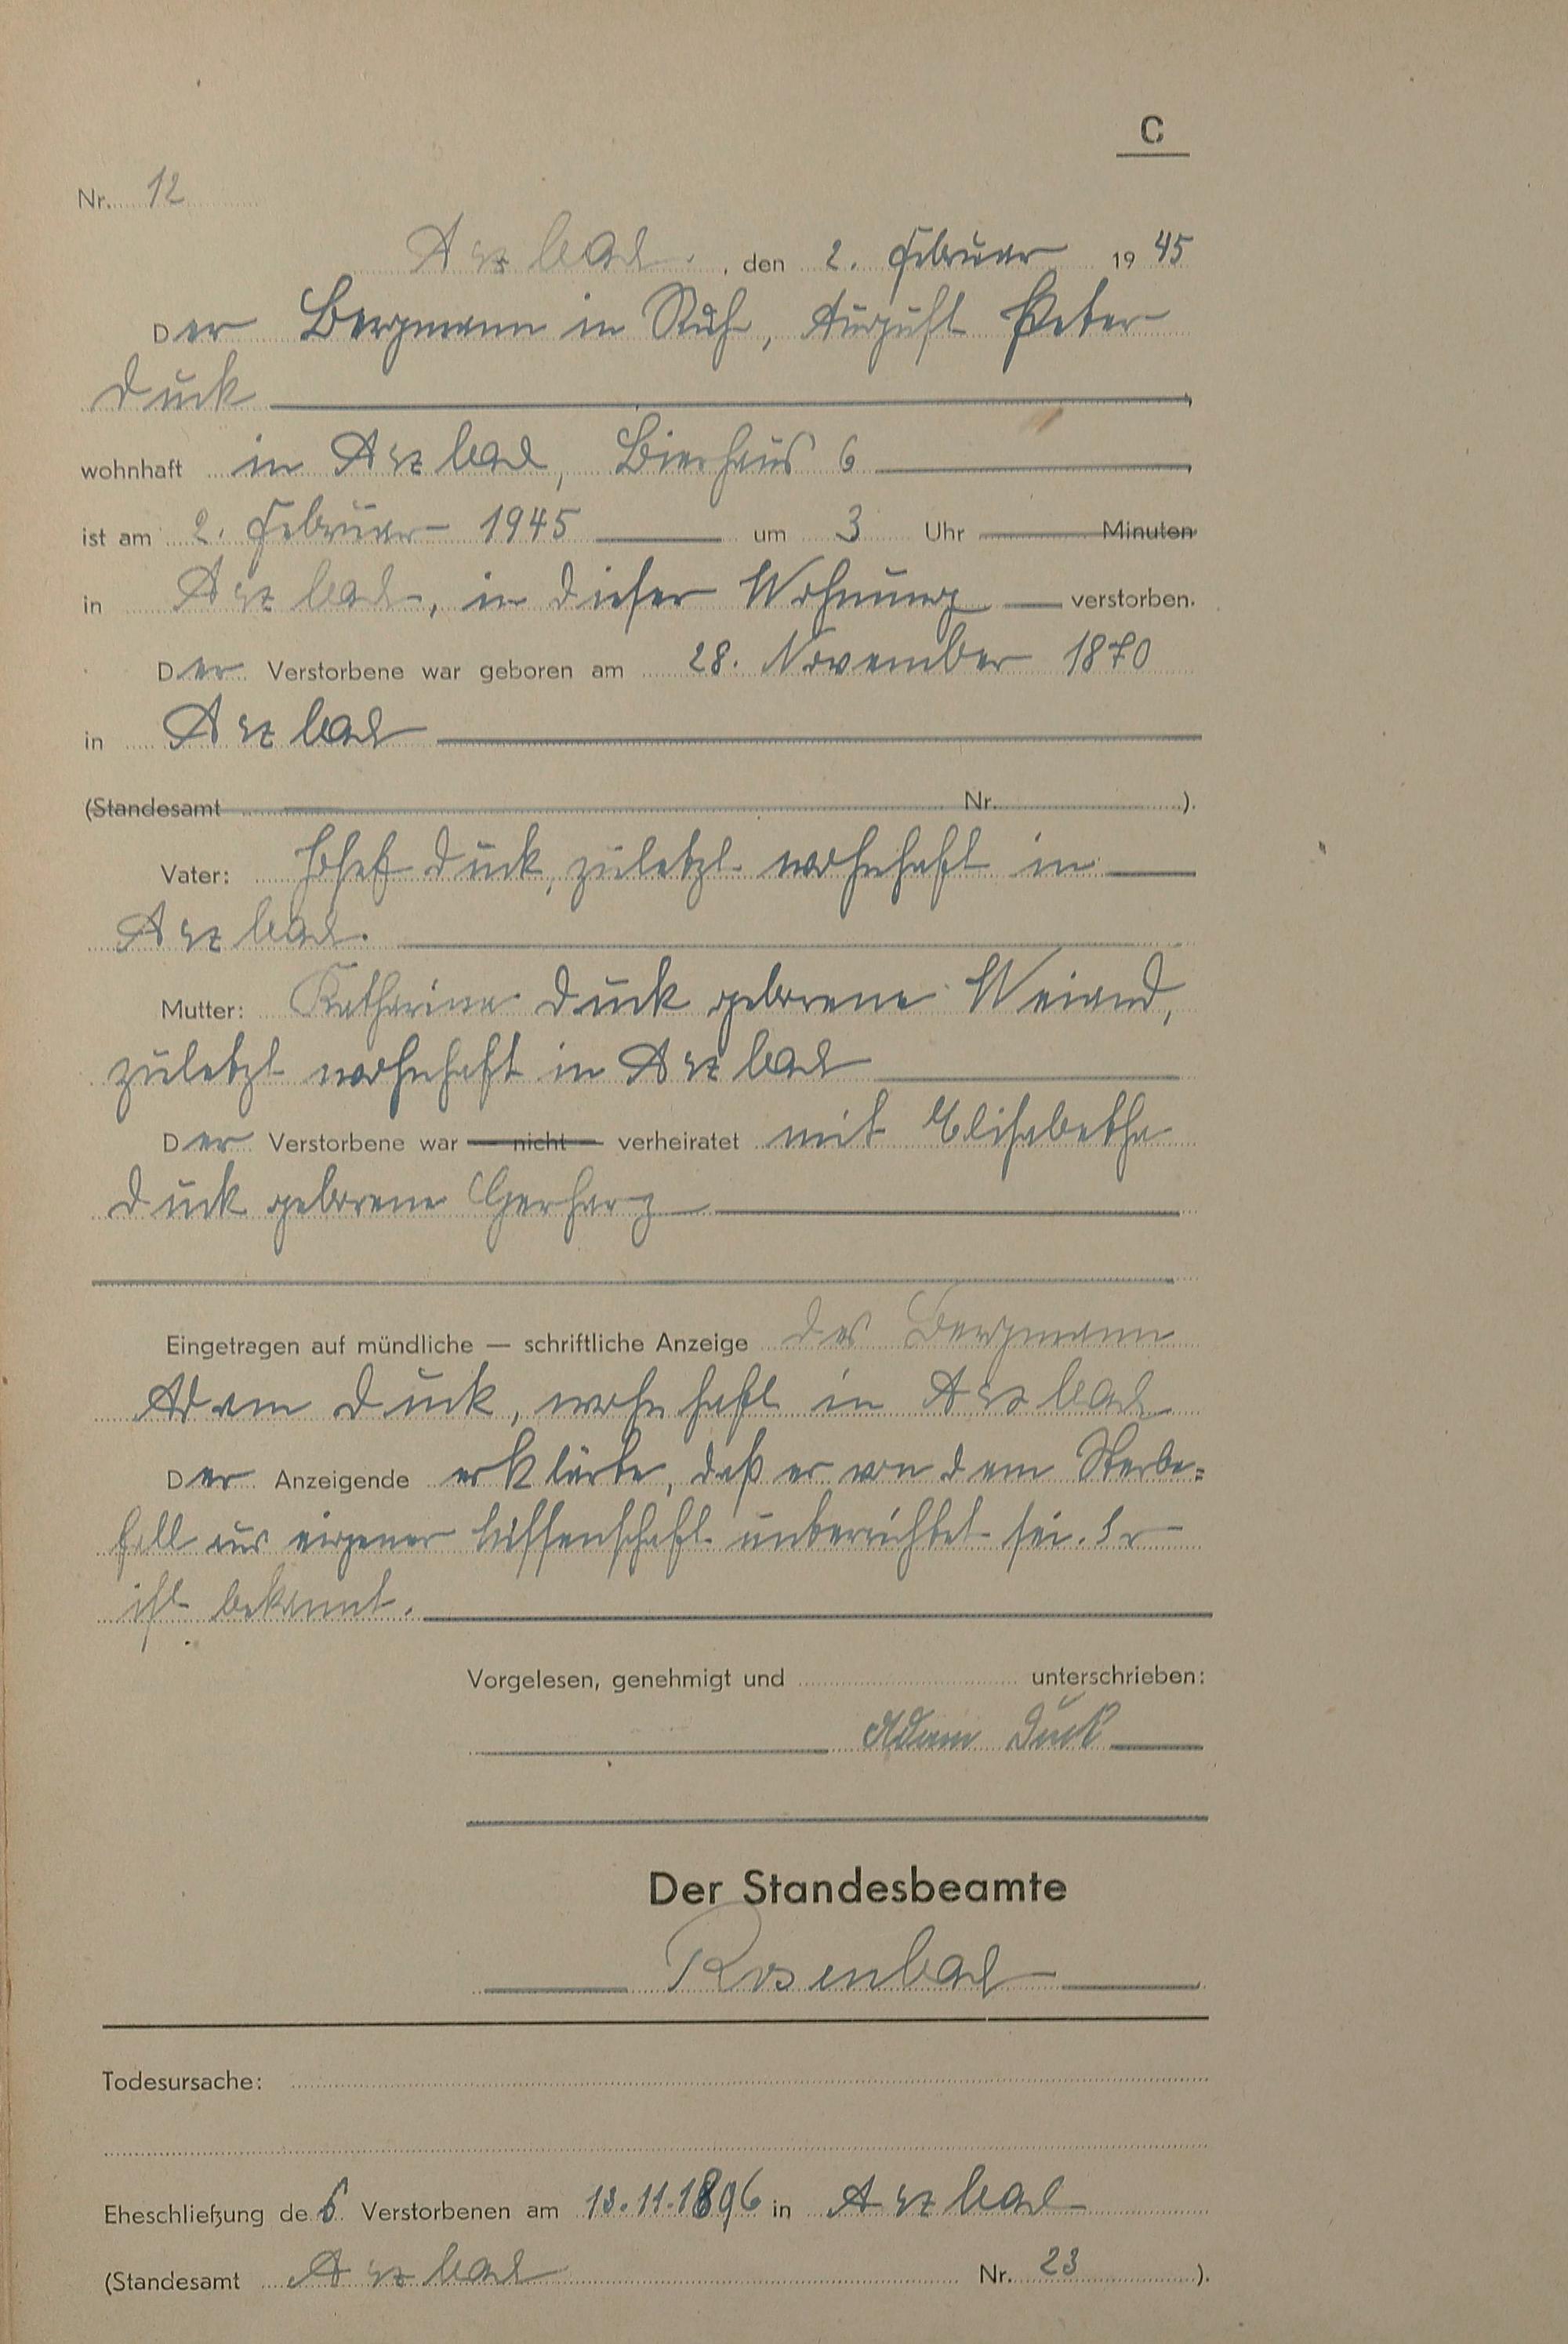 C
Nr. 12
Arzbach, den 2. Februar 1945
Der Bergmann in Ruh, August Peter
Duck
wohnhaft in Arzbach, Bierhaus 6
ist am 2. Februar 1945 um 3 Uhr Minuten
in Arzbach, in dieser Wohnung verstorben.
Der Verstorbene war geboren am 28. November 1870
in Arzbach
(Standesamt Nr. ).
Vater: Josef Duck, zuletzt wohnhaft in
Arzbach.
Mutter: Katharina Duck geborene Weiand,
zuletzt wohnhaft in Arzbach
Der Verstorbene war nicht verheiratet mit Elisabetha
Duck geborene Gerharz
Eingetragen auf mündliche — schriftliche Anzeige des Bergmann
Adam Duck, wohnhaft in Arzbach
Der Anzeigende erklärte, daß er von dem Sterbe=
fall aus eigener Wissenschaft unterrichtet sei. Er
ist bekannt.
Vorgelesen, genehmigt und unterschrieben:
Adam Duck
Der Standesbeamte
Rosenbach
Todesursache:
Eheschließung des Verstorbenen am 13.11.1896 in Arzbach
(Standesamt Arzbach Nr. 23 ).